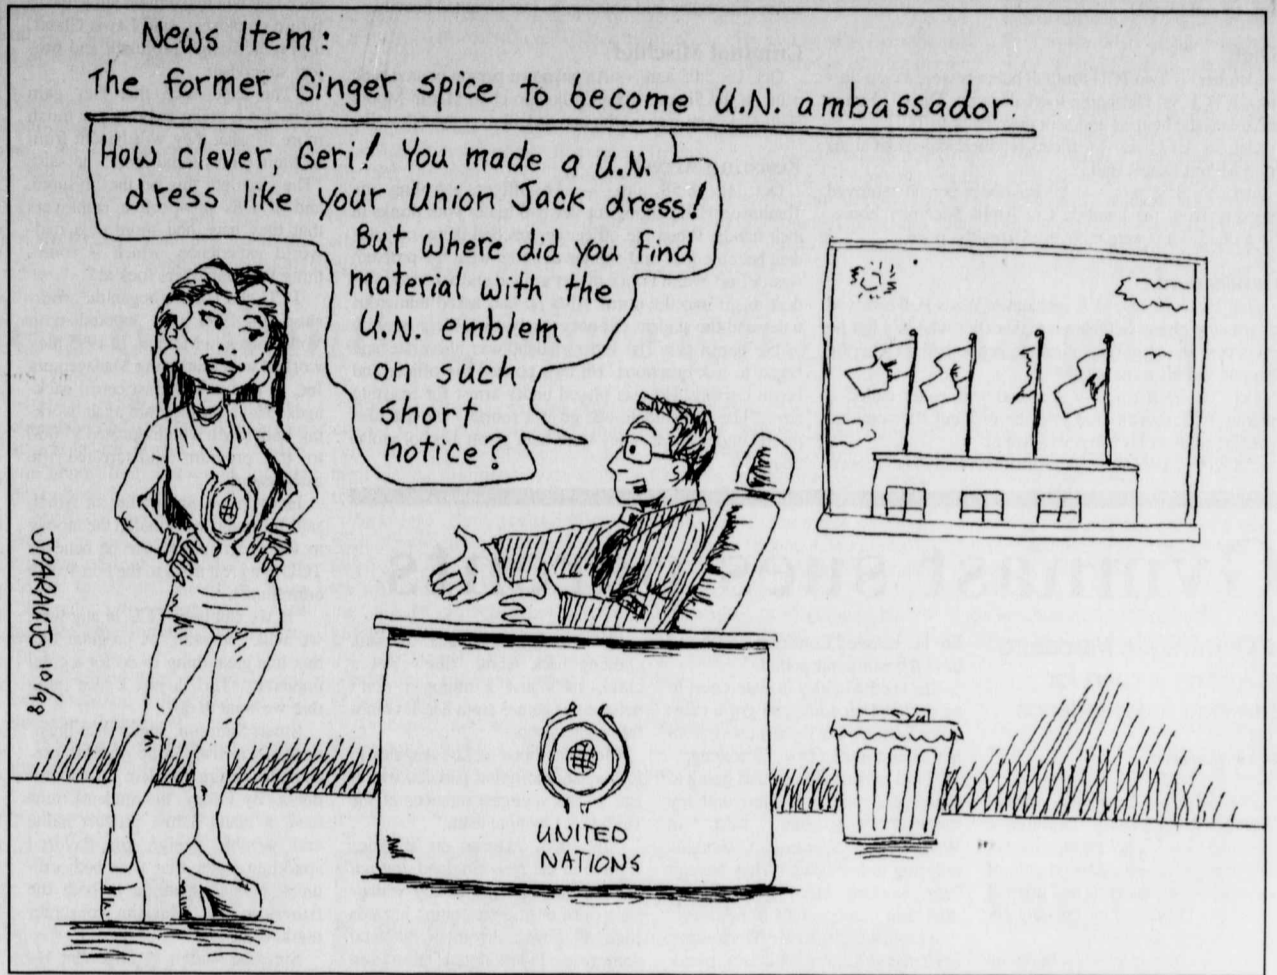 News Item:
The former Ginger Spice to become U.N. ambassador.
How clever, Geri! You made a U.N.
dress like your Union Jack dress!
But where did you find
material with the
U.N. emblem
on such
short
notice?
JPARAUDO 10/98
UNITED
NATIONS